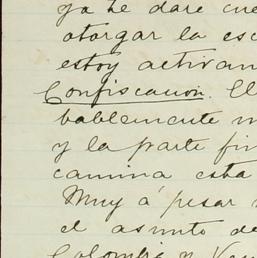 ya le daré cue
otorgar la esc
estoy activan
Confiscación. El
bablemente m
y la parte fin
camina esta
Muy á pesar
el asunto de
Colombia y Ven